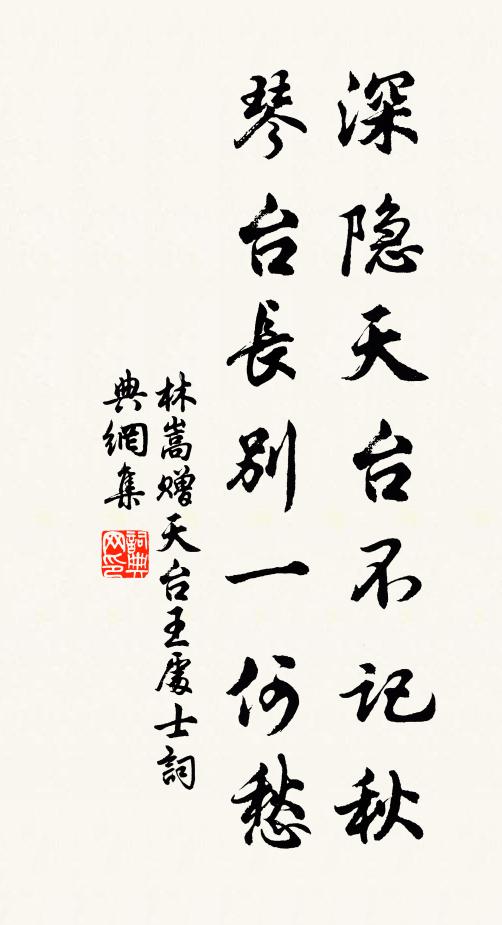 深隐天台不记秋
琴台長别一何愁
林嵩赠天台王處士詞
典網集
詞典网印